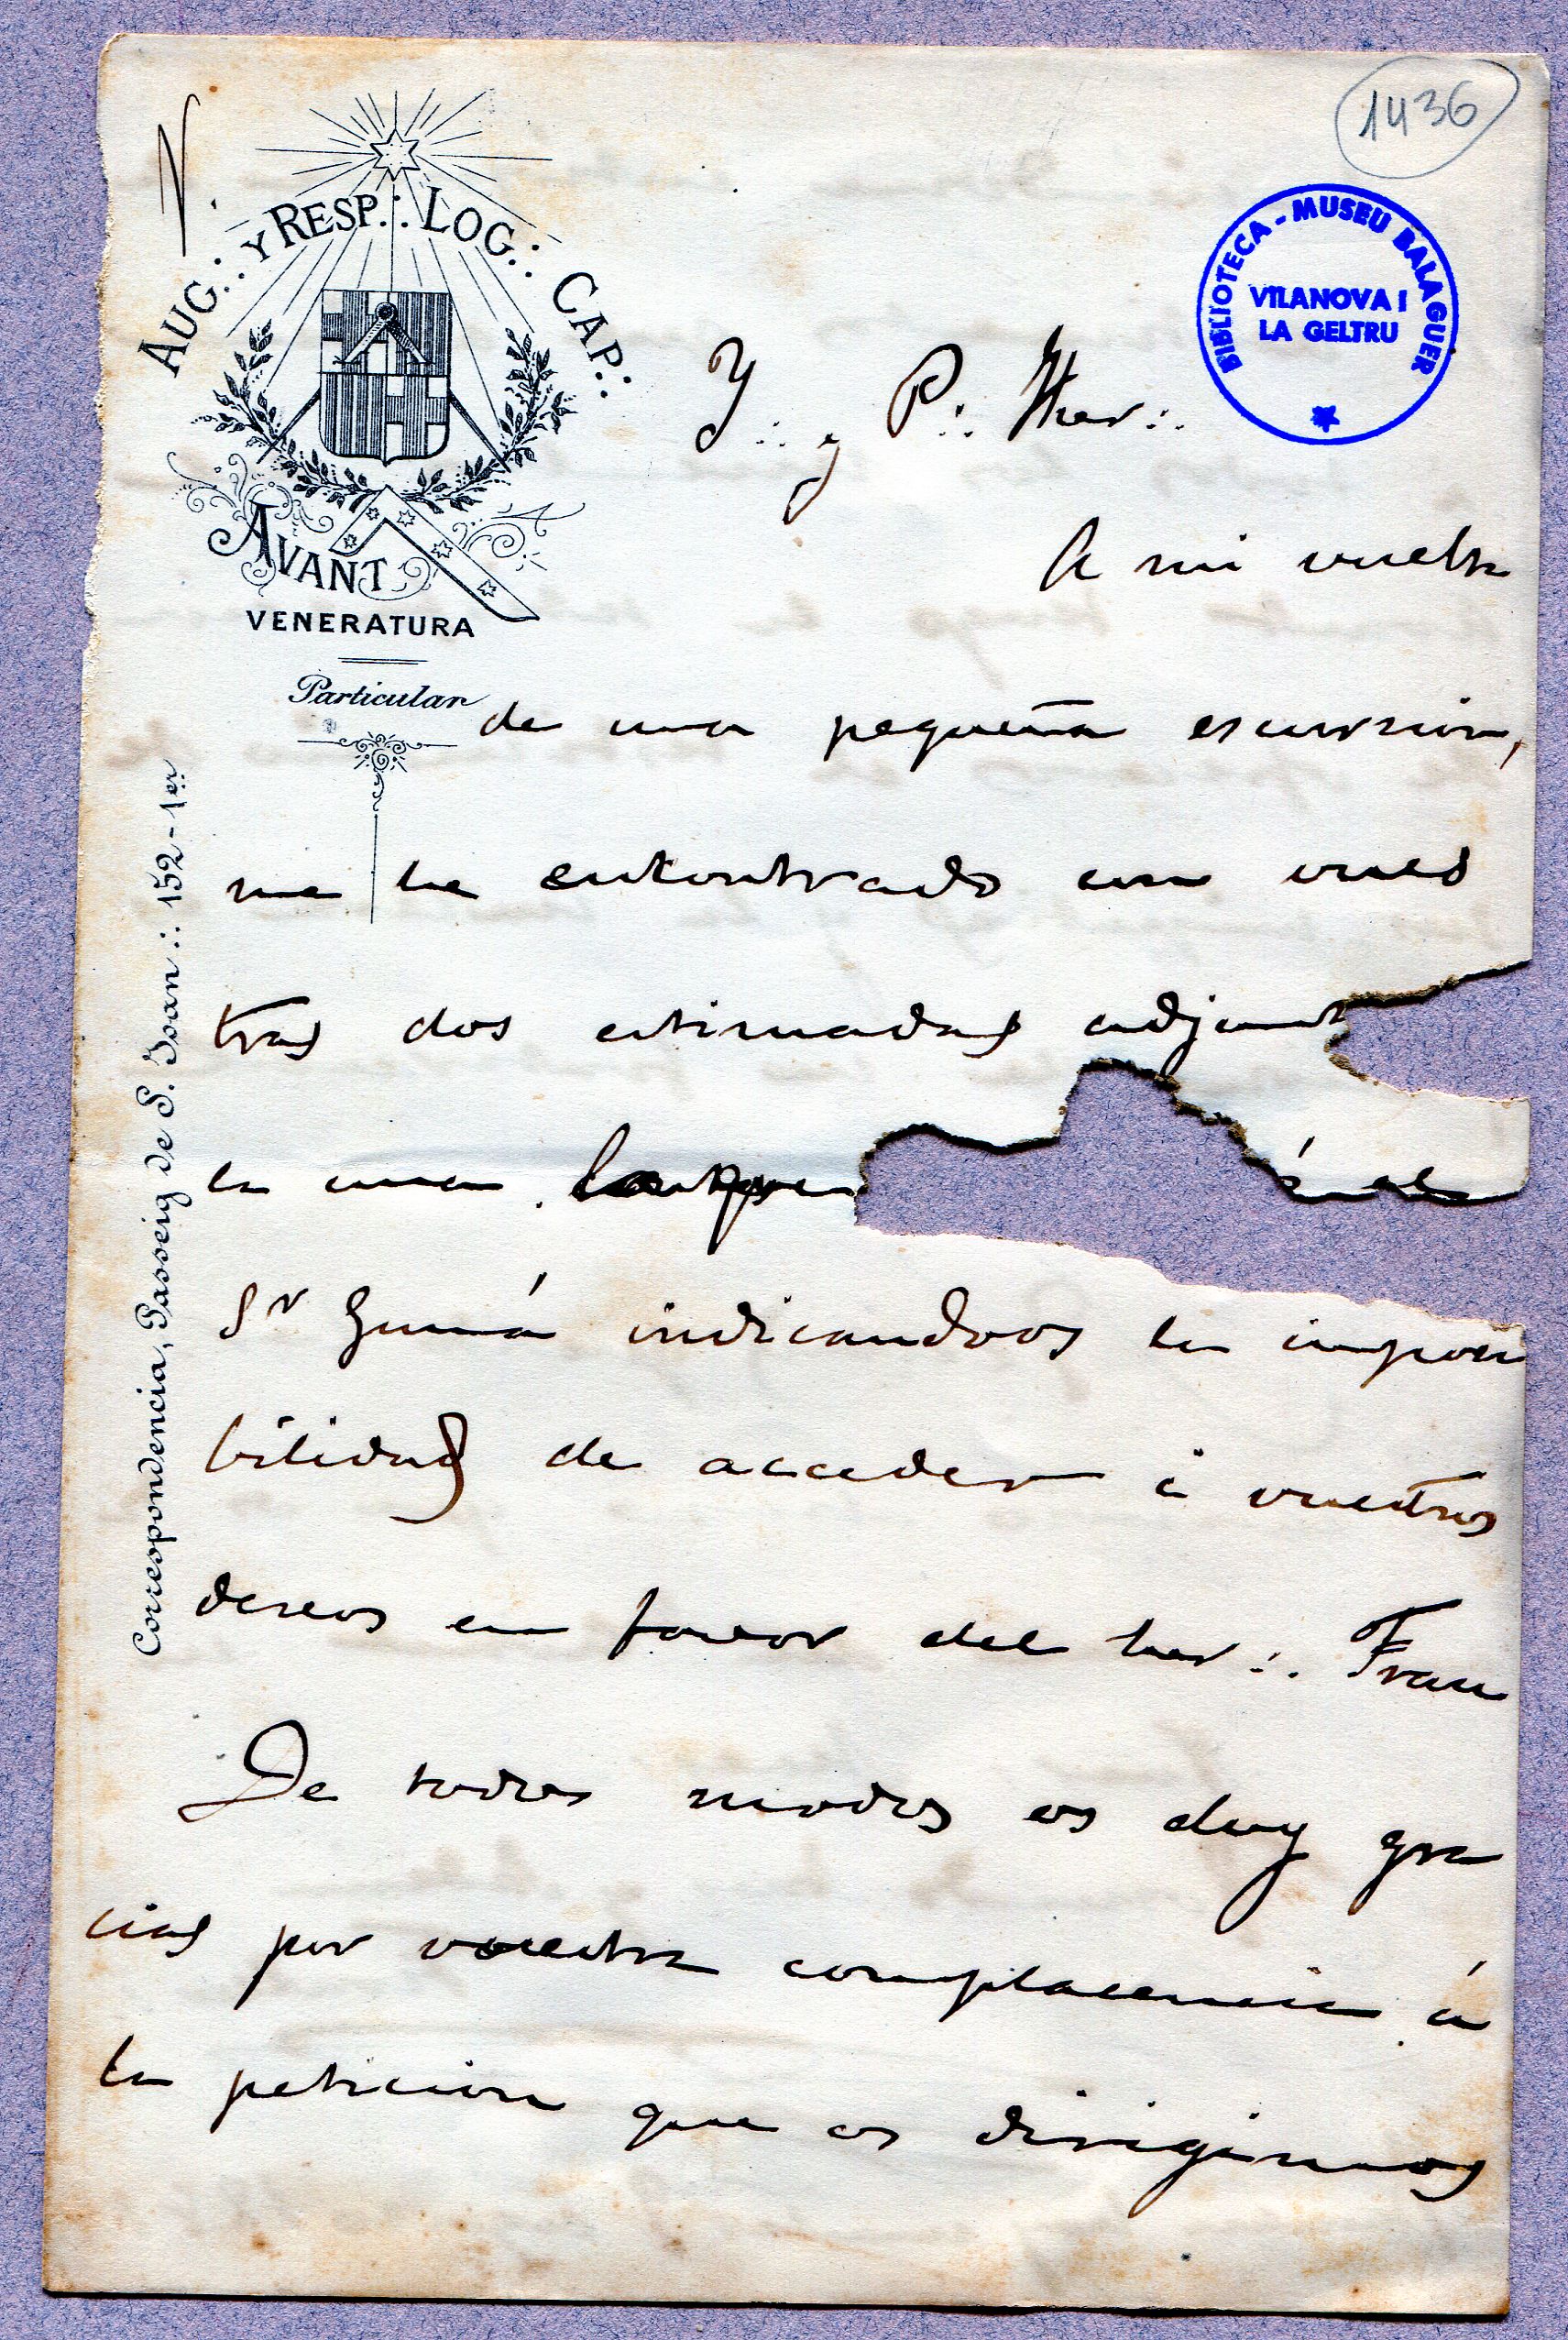 1436
BIBLIOTECA - MUSEU BALAGUER
VILANOVA I
LA GELTRU
AUG∴ Y RESP∴ LOG∴ CAP∴
AVANT
VENERATURA
Particular
Correspondencia, Passeig de S. Joan ∴ 152-1er
Y∴ y P∴ Her∴
A mi vuelta
de una pequeña escursion,
me he encontrado con vues
tras dos estimadas adjunt
la una
Sr Gumá indicandoos la imposi
bilidad de acceder á vuestros
deseos en favor del her∴ Frau
De todos modos os doy gra
cias por vuestra complacencia á
la peticion que os dirigimos